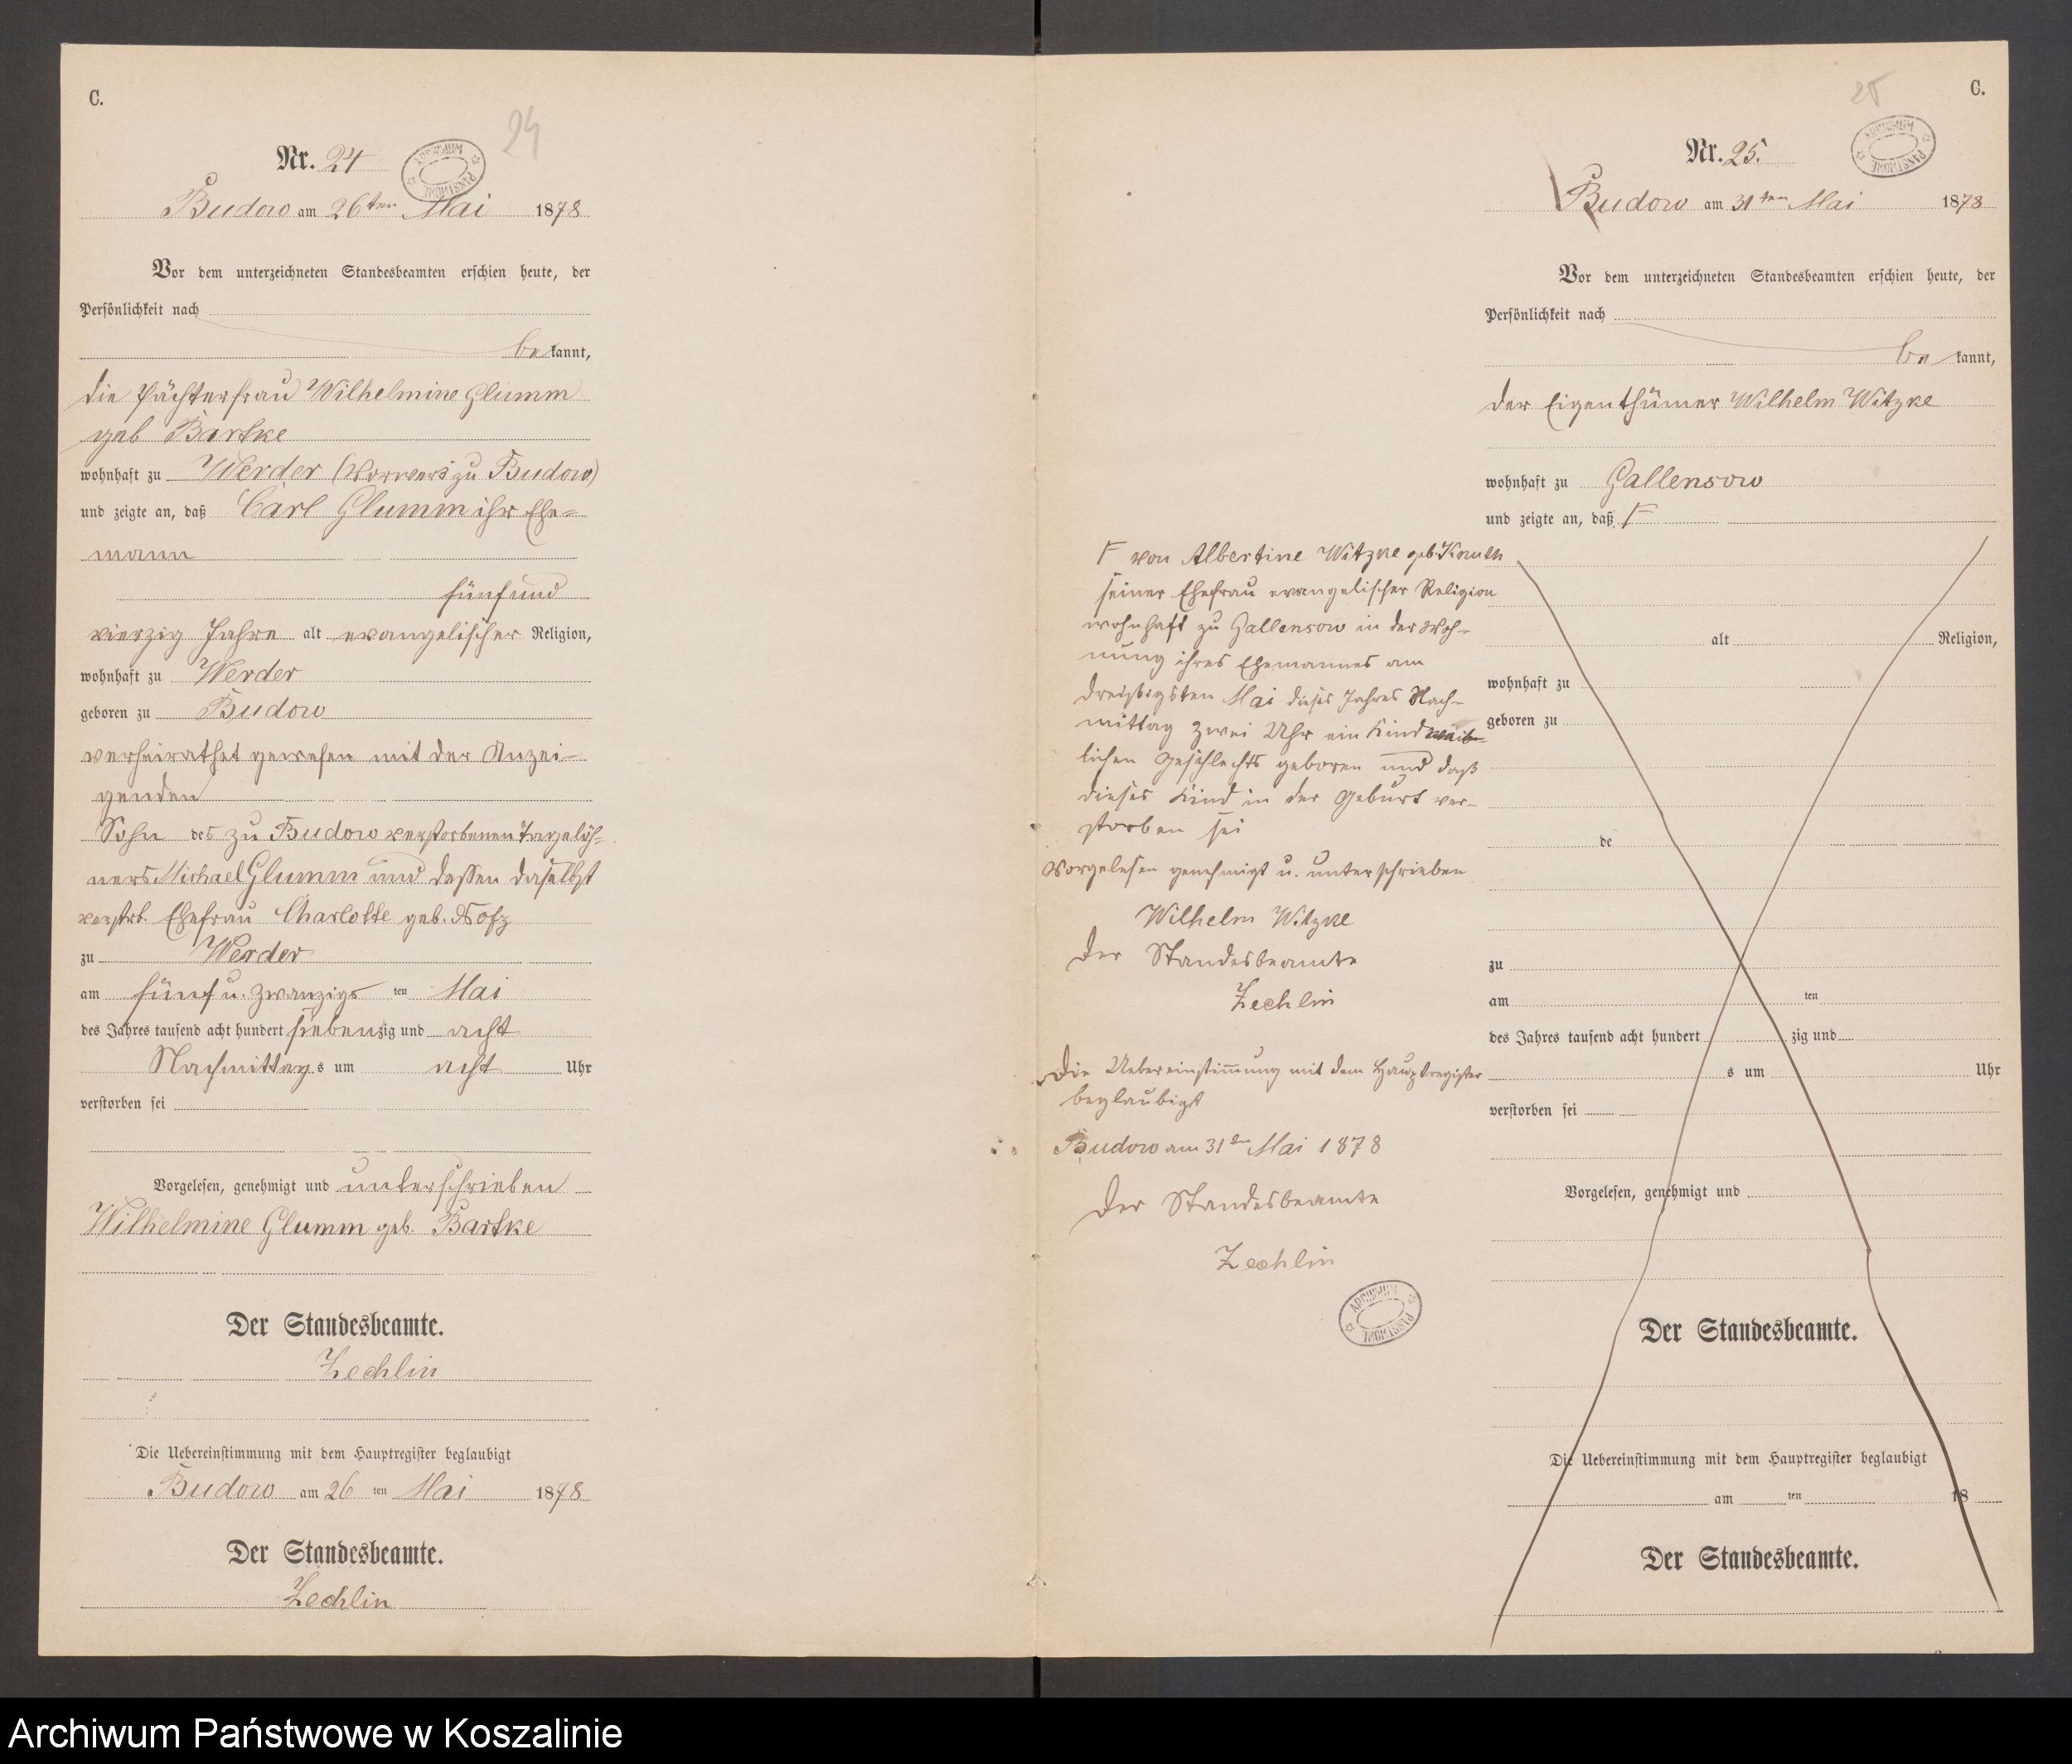 C.
24
Nr. 24
ARCHIWUM PAŃSTWOWE
Budow am 26ten Mai 1878
Vor dem unterzeichneten Standesbeamten erschien heute, der
Persönlichkeit nach
bekannt,
die Pächterfrau Wilhelmine Glumm
geb Bartke
wohnhaft zu Werder (Vorwerk zu Budow)
und zeigte an, daß Carl Glumm ihr Ehe-
mann
fünf und
vierzig Jahre alt evangelischer Religion,
wohnhaft zu Werder
geboren zu Budow
verheirathet gewesen mit der Anzei-
genden
Sohn des zu Budow verstorbenen Tagelöh-
ners Michael Glumm und dessen daselbst
verstrb. Ehefrau Charlotte geb.
zu Werder
am fünf u. zwanzigsten Mai
des Jahres tausend acht hundert siebenzig und acht
Nachmittags um acht Uhr
verstorben sei
Vorgelesen, genehmigt und unterschrieben
Wilhelmine Glumm geb. Bartke
Der Standesbeamte.
Zechlin
Die Uebereinstimmung mit dem Hauptregister beglaubigt
Budow am 26 ten Mai 1878
Der Standesbeamte.
Zechlin
C.
25
Nr. 25.
ARCHIWUM PAŃSTWOWE
Budow am 31ten Mai 1878
Vor dem unterzeichneten Standesbeamten erschien heute, der
Persönlichkeit nach
bekannt,
der Eigenthümer Wilhelm Witzke
wohnhaft zu Gallensow
und zeigte an, daß
von Albertine Witzke geb. Knuth
seiner Ehefrau evangelischer Religion
wohnhaft zu Gallensow in der Woh-
nung ihres Ehemannes am
dreißigsten Mai dieses Jahres Nach-
mittag zwei Uhr ein Kind weib-
lichen Geschlechts geboren und daß
dieses Kind in der Geburt ver-
storben sei
Vorgelesen genehmigt u. unterschrieben
Wilhelm Witzke
Der Standesbeamte
Zechlin
Die Uebereinstimmung mit dem Hauptregister
beglaubigt
Budow am 31ten Mai 1878
Der Standesbeamte
Zechlin
ARCHIWUM PAŃSTWOWE
alt Religion,
wohnhaft zu
geboren zu
de
zu
am ten
des Jahres tausend acht hundert zig und
s um Uhr
verstorben sei
Vorgelesen, genehmigt und
Der Standesbeamte.
Die Uebereinstimmung mit dem Hauptregister beglaubigt
am ten 18
Der Standesbeamte.
Archiwum Państwowe w Koszalinie